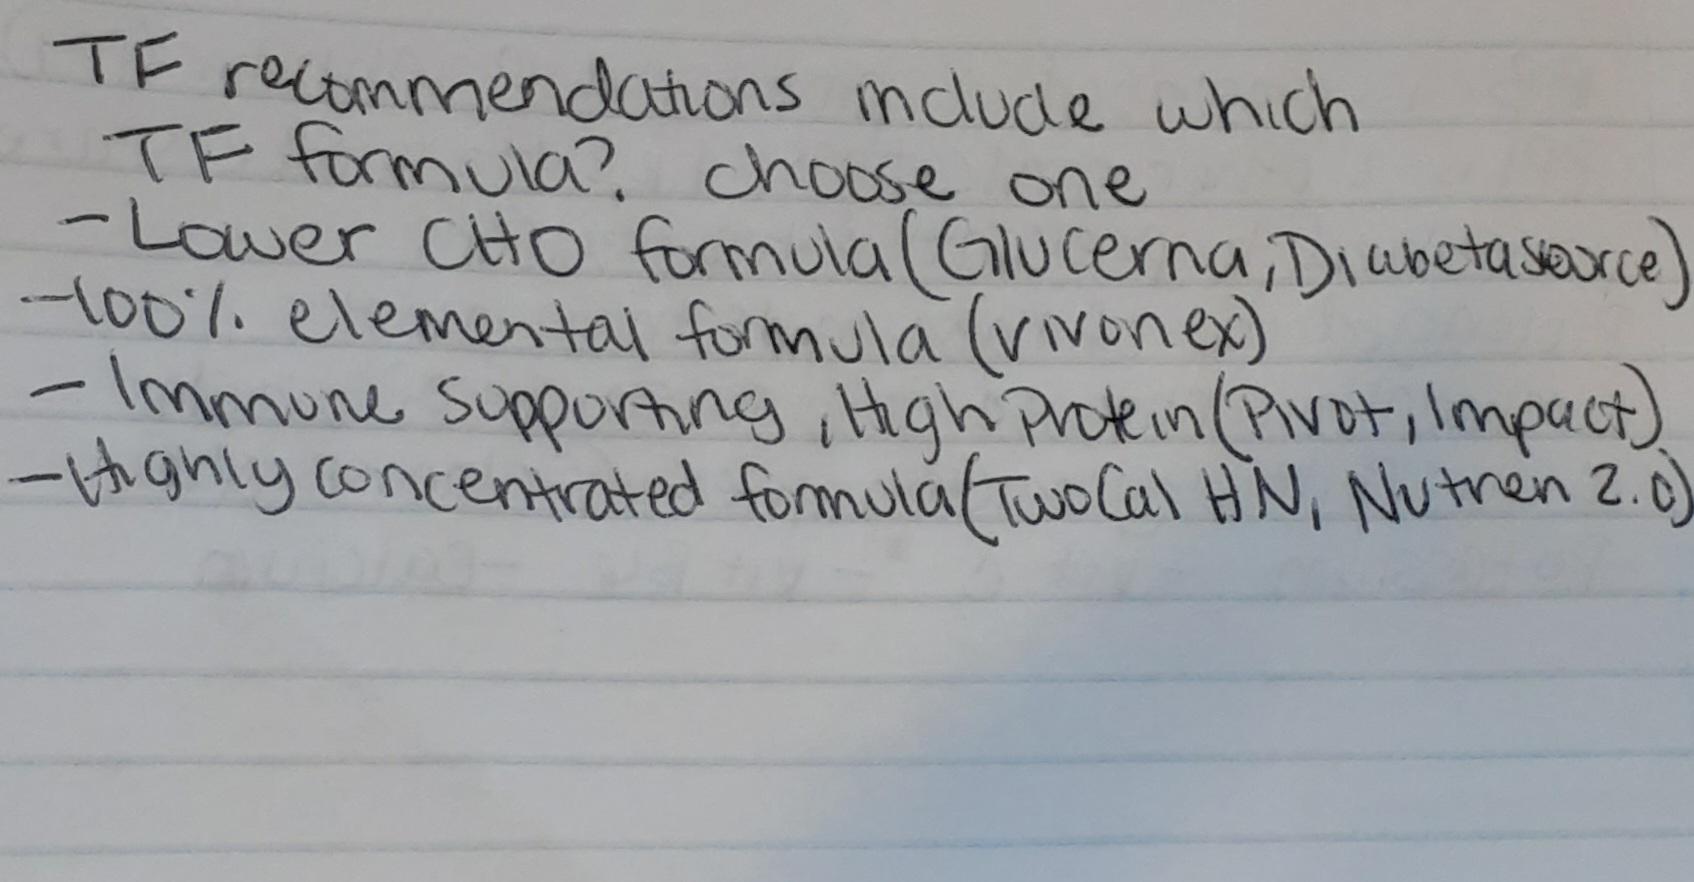 TF recommendations include which
TF formula? choose one
- Lower CHO formula (Glucerna, Diabetasource)
- 100% elemental formula (vivonex)
- Immune supporting, High Protein (Pivot, Impact)
- Highly concentrated formula (TwoCal HN, Nutren 2.0)